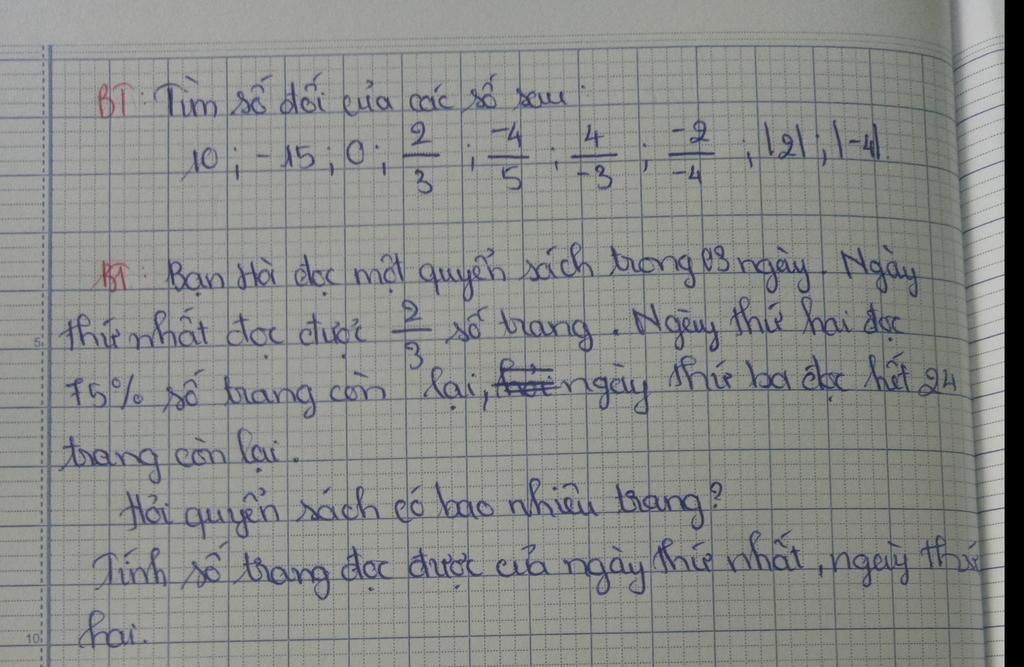 BT: Tìm số đối của các số sau:
10; -15; 0; 2/3; -4/5; 4/-3; -2/-4; |2|; |-4|.
BT: Bạn Hà đọc một quyển sách trong 03 ngày. Ngày
thứ nhất đọc được 2/3 số trang. Ngày thứ hai đọc
75% số trang còn lại, ngày thứ ba đọc hết 24
trang còn lại.
Hỏi quyển sách có bao nhiêu trang?
Tính số trang đọc được của ngày thứ nhất, ngày thứ
hai.
5
10